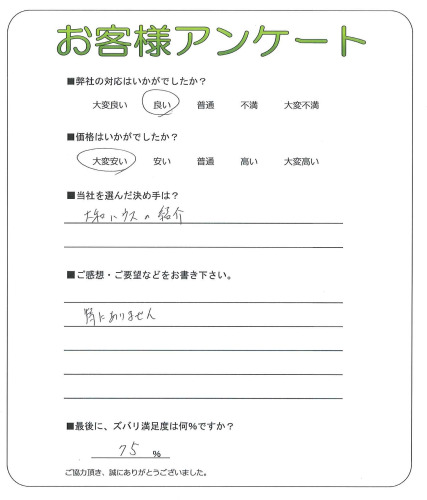 お客様アンケート
■弊社の対応はいかがでしたか？
大変良い 良い 普通 不満 大変不満
■価格はいかがでしたか？
大変安い 安い 普通 高い 大変高い
■当社を選んだ決め手は？
大和ハウスの紹介
■ご感想・ご要望などをお書き下さい。
特にありません
■最後に、ズバリ満足度は何%ですか？
75 %
ご協力頂き、誠にありがとうございました。